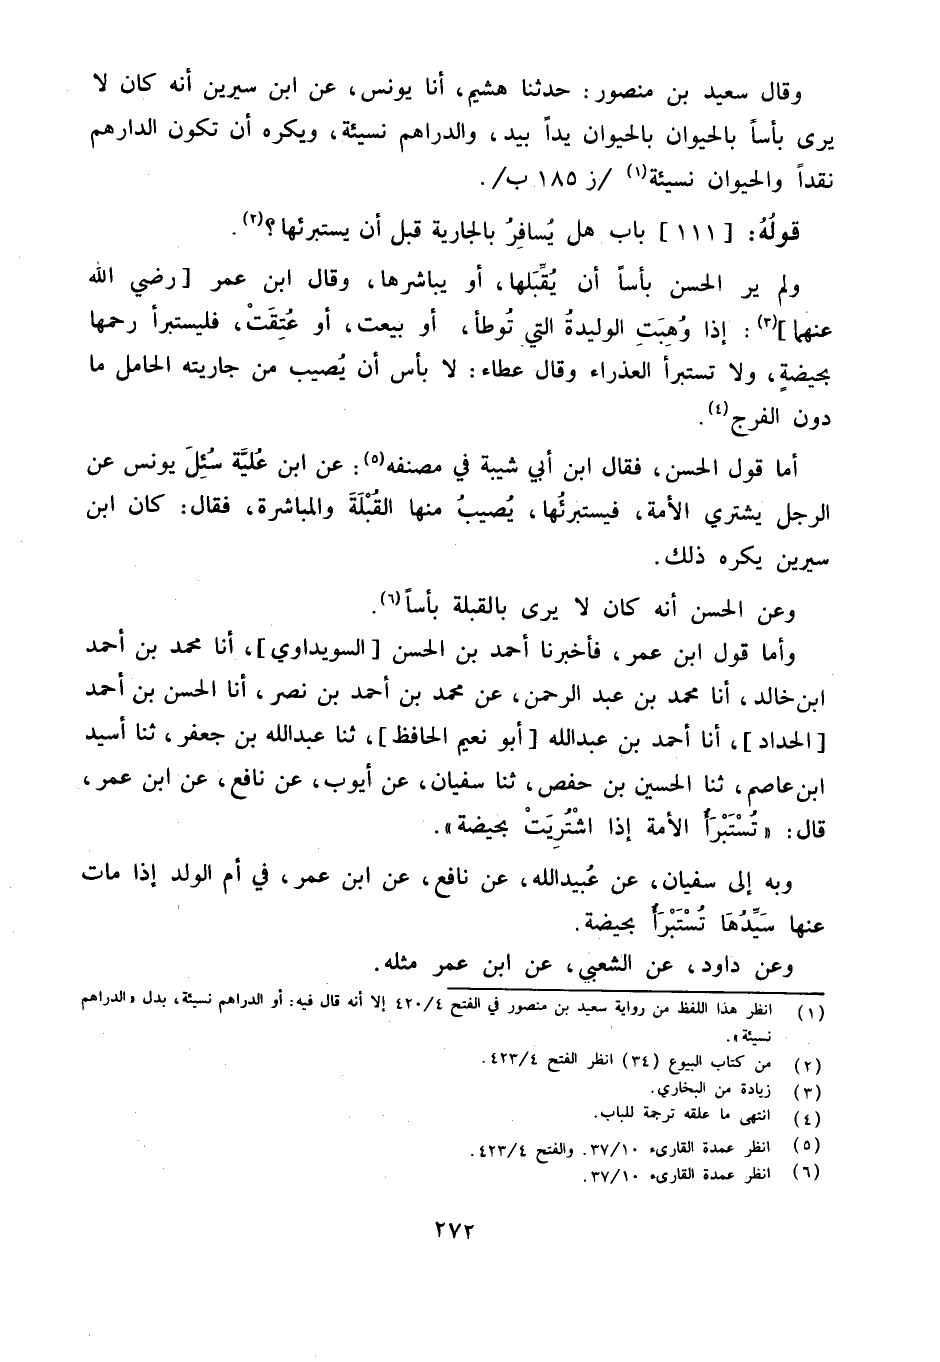 وقال سعيد بن منصور: حدثنا هشيم، أنا يونس، عن ابن سيرين أنه كان لا
يرى بأساً بالحيوان بالحيوان يداً بيد، والدراهم نسيئة، ويكره أن تكون الدارهم
نقداً والحيوان نسيئة(١) /ز ١٨٥ ب/.
قولُهُ: [١١١] باب هل يُسافِرُ بالجارية قبل أن يستبرئها؟(٢).
ولم ير الحسن بأساً أن يُقَبِّلها، أو يباشرها، وقال ابن عمر [رضي الله
عنهما](٣): إذا وُهِبَتِ الوليدةُ التي تُوطأ، أو بيعت، أو عُتِقَتْ، فليستبرأ رحمها
بحيضةٍ، ولا تستبرأ العذراء وقال عطاء: لا بأس أن يُصيب من جاريته الحامل ما
دون الفرج(٤).
أما قول الحسن، فقال ابن أبي شيبة في مصنفه(٥): عن ابن عُليَّة سُئِلَ يونس عن
الرجل يشتري الأمة، فيستبرئُها، يُصيبُ منها القُبْلَةَ والمباشرة، فقال: كان ابن
سيرين يكره ذلك.
وعن الحسن أنه كان لا يرى بالقبلة بأساً(٦).
وأما قول ابن عمر، فأخبرنا أحمد بن الحسن [السويداوي]، أنا محمد بن أحمد
ابن خالد، أنا محمد بن عبد الرحمن، عن محمد بن أحمد بن نصر، أنا الحسن بن أحمد
[الحداد]، أنا أحمد بن عبدالله [أبو نعيم الحافظ]، ثنا عبدالله بن جعفر، ثنا أسيد
ابن عاصم، ثنا الحسين بن حفص، ثنا سفيان، عن أيوب، عن نافع، عن ابن عمر،
قال: «تُسْتَبْرَأُ الأمة إذا اشْتُرِيَتْ بحيضة».
وبه إلى سفيان، عن عُبيدالله، عن نافع، عن ابن عمر، في أم الولد إذا مات
عنها سَيِّدُهَا تُسْتَبْرَأُ بحيضة.
وعن داود، عن الشعبي، عن ابن عمر مثله.
(١) انظر هذا اللفظ من رواية سعيد بن منصور في الفتح ٤٢٠/٤ إلا أنه قال فيه: أو الدراهم نسيئة، بدل «الدراهم
نسيئة».
(٢) من كتاب البيوع (٣٤) انظر الفتح ٤٢٣/٤.
(٣) زيادة من البخاري.
(٤) انتهى ما علقه ترجمة للباب.
(٥) انظر عمدة القارىء ٣٧/١٠. والفتح ٤٢٣/٤.
(٦) انظر عمدة القارىء ٣٧/١٠.
٢٧٢